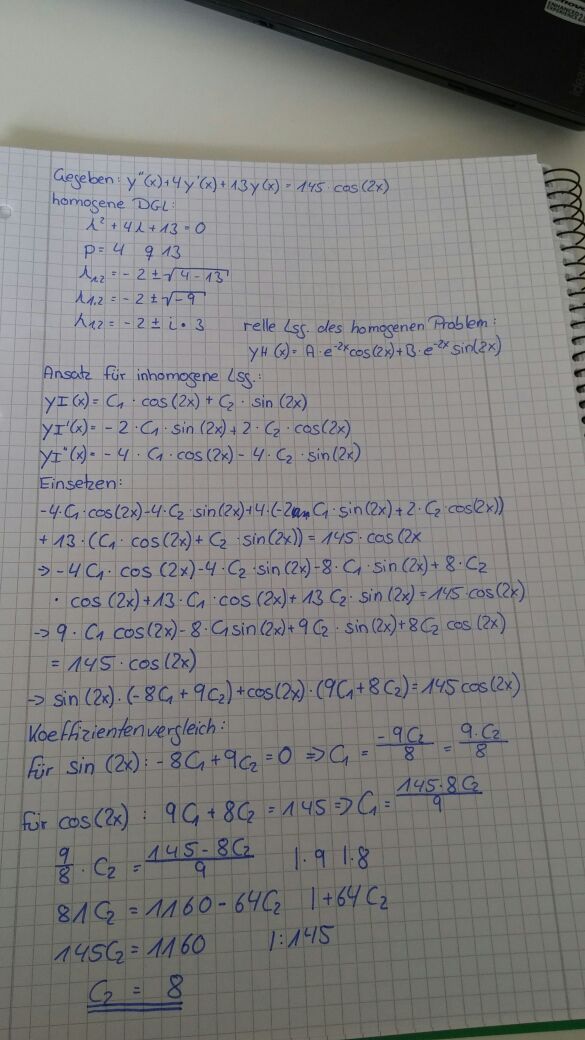 Gegeben: y''(x)+4y'(x)+13y(x)=145·cos(2x)
homogene DGL:
λ²+4λ+13=0
p=4 q 13
λ1,2=-2±√4-13
λ1,2=-2±√-9
λ1,2=-2±i•3 relle Lsg. des homogenen Problem:
yH(x)=A·e^-2x cos(2x)+B·e^-2x sin(2x)
Ansatz für inhomogene Lsg.:
yI(x)=C1·cos(2x)+C2·sin(2x)
yI'(x)=-2·C1·sin(2x)+2·C2·cos(2x)
yI''(x)=-4·C1·cos(2x)-4·C2·sin(2x)
Einsetzen:
-4·C1·cos(2x)-4·C2·sin(2x)+4·(-2 C1·sin(2x)+2·C2·cos(2x))
+13·(C1·cos(2x)+C2·sin(2x))=145·cos(2x
⇒-4C1·cos(2x)-4·C2·sin(2x)-8·C1·sin(2x)+8·C2
·cos(2x)+13·C1·cos(2x)+13C2·sin(2x)=145·cos(2x)
→9·C1 cos(2x)-8·C1sin(2x)+9C2·sin(2x)+8C2 cos(2x)
=145·cos(2x)
→sin(2x)·(-8C1+9C2)+cos(2x)·(9C1+8C2)=145cos(2x)
Koeffizientenvergleich:
für sin(2x):-8C1+9C2=0 ⇒C1=-9C2/8=9·C2/8
für cos(2x): 9C1+8C2=145⇒C1=145·8C2/9
9/8·C2=145-8C2/9 |·9 |·8
81C2=1160-64C2 |+64C2
145C2=1160 |:145
C2=8